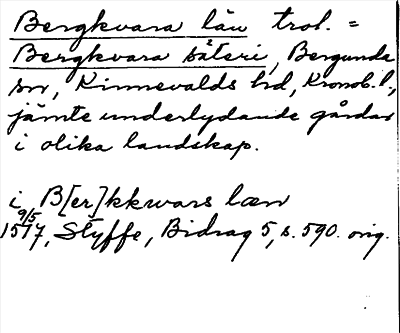 Bergkvara län trol. =
Bergkvara säteri, Bergunda
sn, Kinnevalds hd, Kronob. l.,
jämte underlydande gårdar
i olika landskap.
i B[er]kkwars læn
9/5
1517, Styffe, Bidrag 5, s. 590. orig.